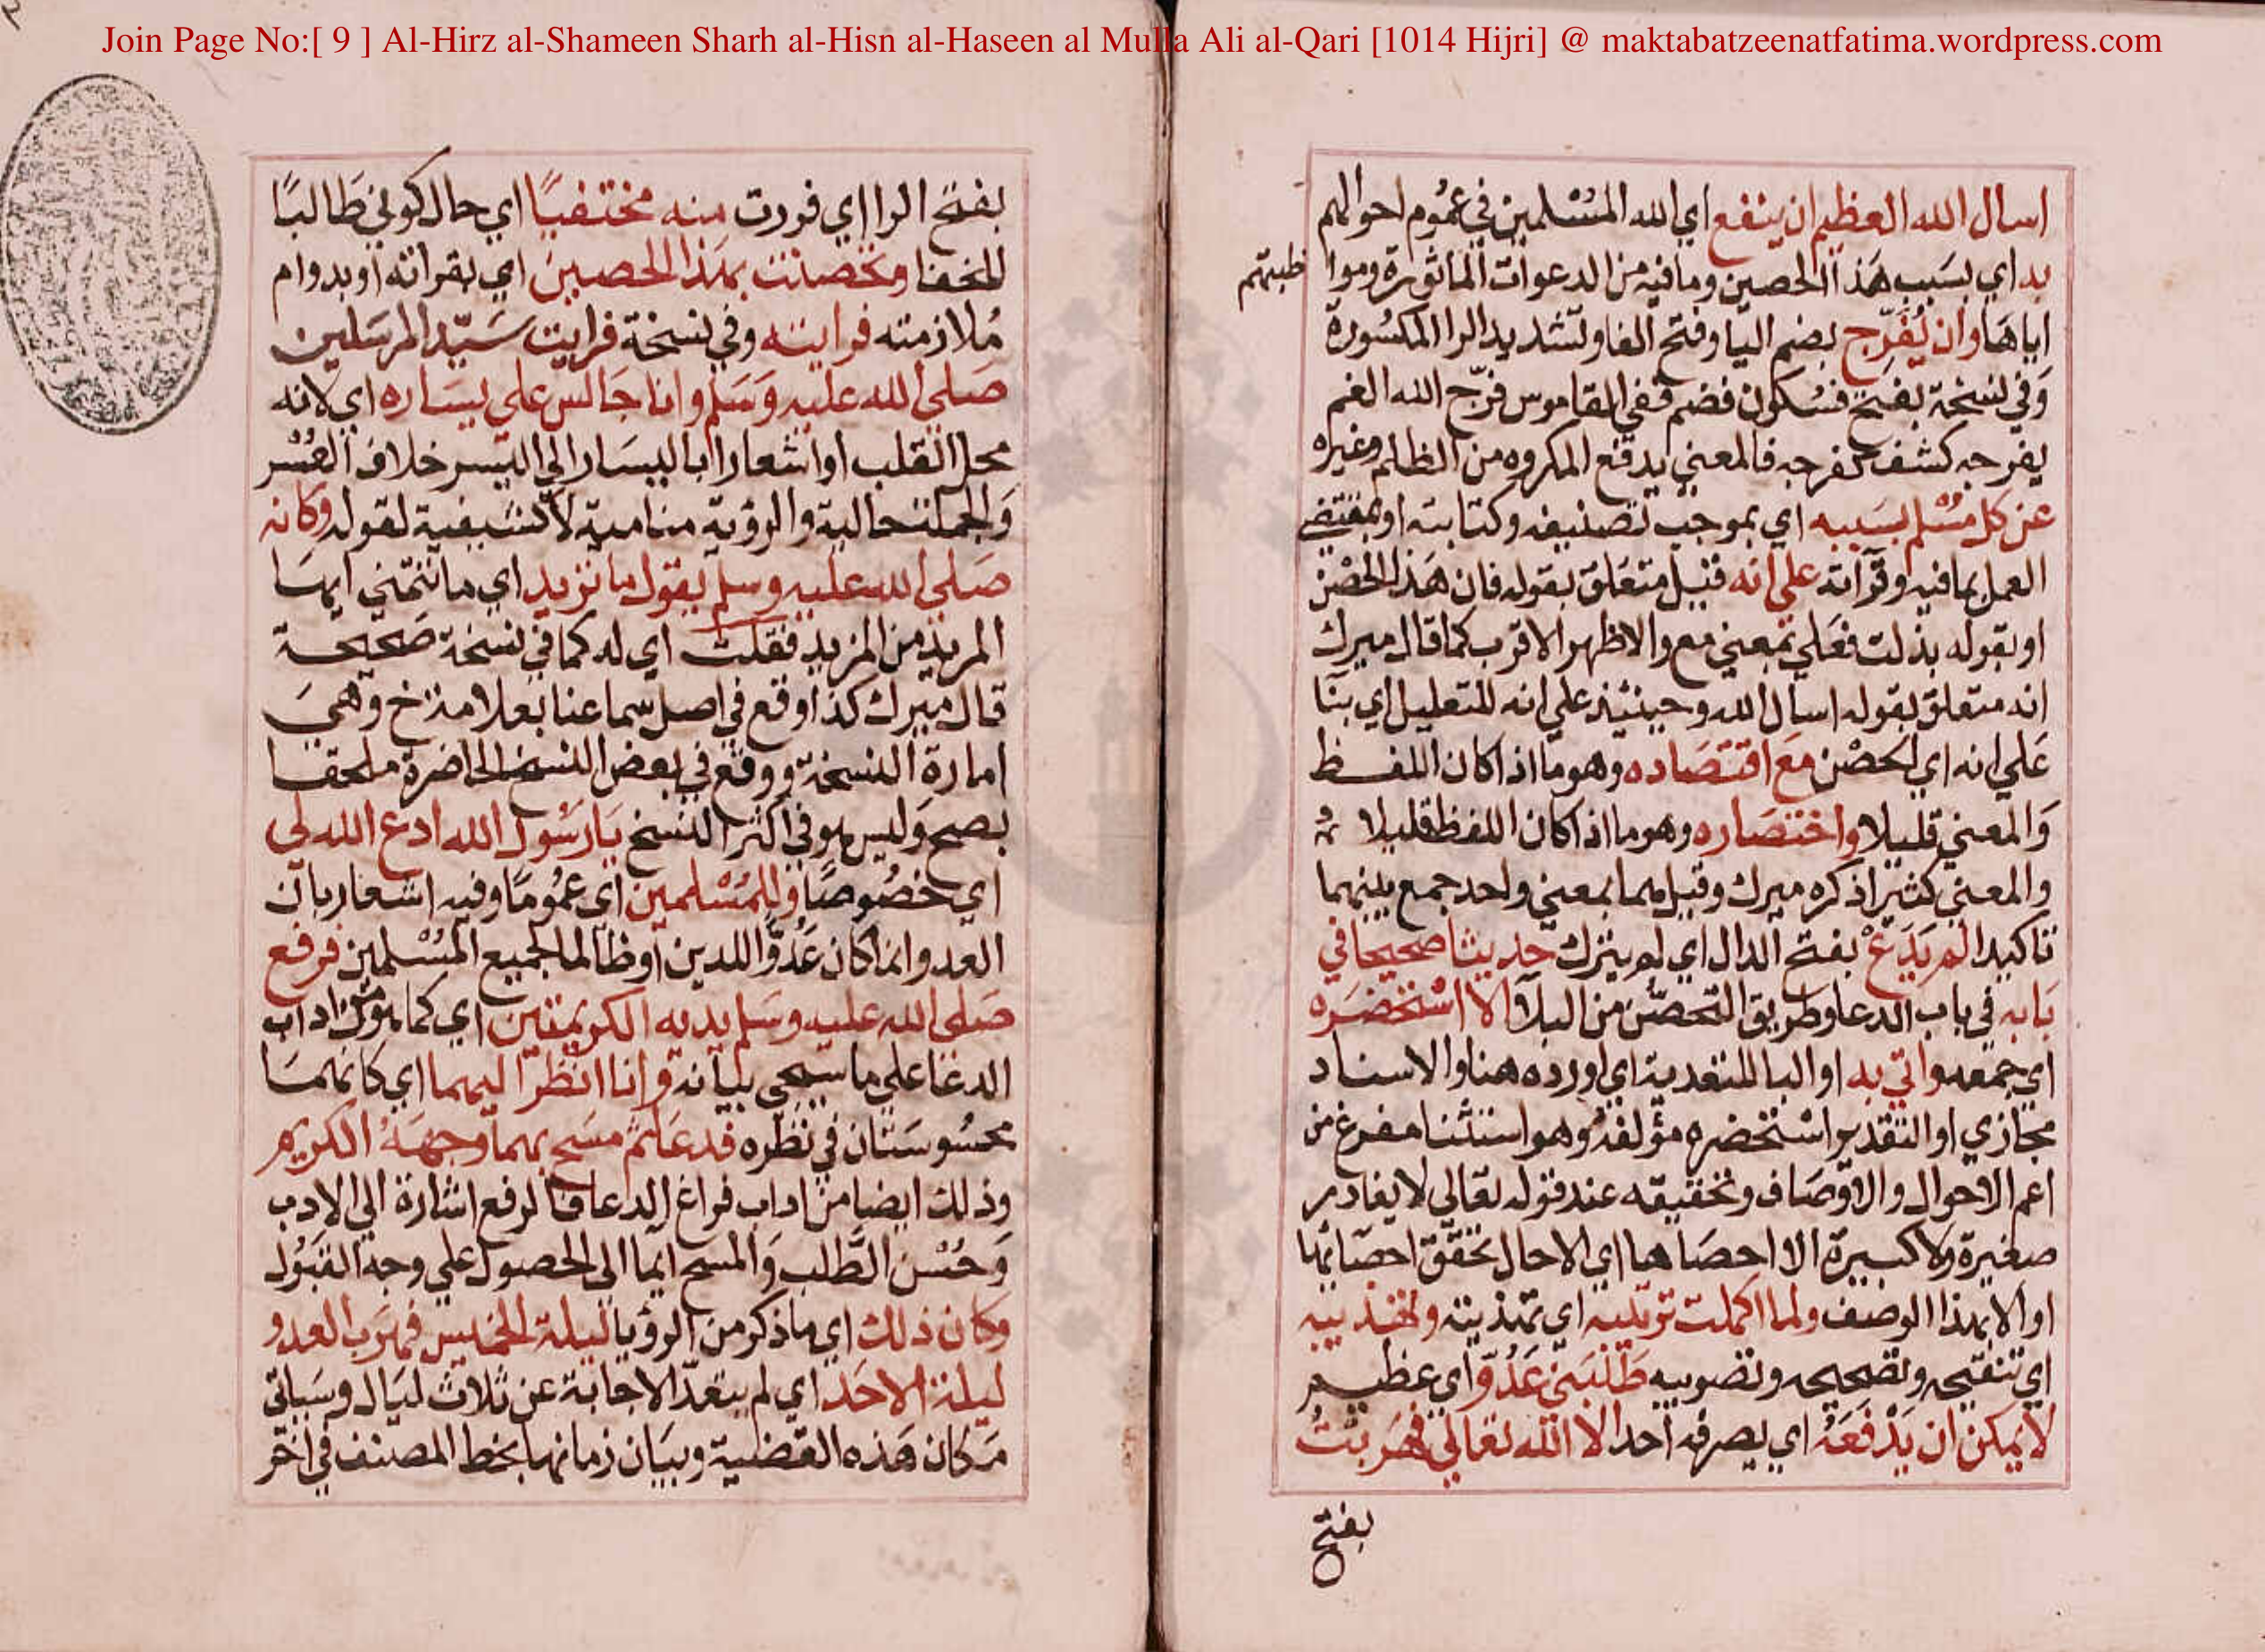 Join Page No:[ 9 ] Al-Hirz al-Shameen Sharh al-Hisn al-Haseen al Mulla Ali al-Qari [1014 Hijri] @ maktabatzeenatfatima.wordpress.com
اسال الله العظيم ان ينفع اي الله المُسْلمين في عمُوم احوالهم
به اي بسَبب هَذا الحصين وما فيه من الدعوات الماثورة ومواظبتهم
اياهَا وان يُفَرِّج بضم اليا وفتح الفا وتشديد الرا المكسُورة
وَفي نسخة بفتح فسُكون فضم ففي القاموس فرّج الله الغم
يفرجه كشف كفرجه فالمعني يدفع المكروه من الظالم وغيره
عن كل مسْلم بسَببه اي بموجب تصنيفه وكتابته او بمقتضي
العمل بما فيه وقرآته علي انه قيل متعَلق بقوله فان هَذا الحصْن
او بقوله بذلت فعَلي بمعني مع والاظهر الاقرب كما قال ميرك
انه متعلق بقوله اسال الله وحينئذ علي انه للتعليل اي بنا
عَلي انه اي الحصْن مَع اقتصَاده وهو ما اذا كان اللفظ
وَالمعني قليلا واختصَاره وهو ما اذا كان اللفظ قليلا
والمعني كثيرا ذكره ميرك وقيل هما بمعني واحد جمع بينهما
تاكيدا لم يَدَعْ بفتح الدال اي لم يترك حديثا صحيحا في
بَابه في باب الدعا وطريق التحصّن من البلآ الا اسْتحضَره
اي جمعه واتي به او البا للتعدية اي اورده هنا والاسناد
مجازي او التقدير استحضره مؤلفهُ وهو استثنا مفرغ من
اعم الاحوال والاوصَاف وتحقيقه عند قوله تعالي لا يغادر
صغيرة ولا كبيرة الا احصَاها اي الا حال تحقق احصَائها
او الا بهذا الوصف ولما اكملت ترتيبه اي تهذيبه
اي تنقيحه وتصحيحه وتصويبه طَلَبَني عَدُوّ اي عظيم
لا يمكن ان يَدْفعَهُ اي يصرفه احد الا الله تعَالي فهَربتُ
بفتح
بفتح الرا اي فررت منه مختفيًا اي حال كوني طَالبًا
للخفا وتحصنت بهَذا الحصين اي بقراته او بدوام
مُلازمته فرايته وفي نسخة فرايت سَيّد المرسَلين
صَلي الله عليه وَسَلم وانا جَالس علي يسَاره اي لانه
محل القلب او اشعارا باليسَار الي اليسر خلاف العُسْر
وَالجملة حالية والرؤية منامية لا كشفية لقوله وكانه
صَلي الله عليه وسلم يقول ما تريد اي ما تتمني ايهَا
المريد من المزيد فقلت اي له كما في نسخة صَحيحة
قال ميرك كذا وقع في اصل سماعنا بعلامة خ وَهي
امارة النسخة ووقع في بعض النسخ الحاضرة ملحقا
بصح وَليس هو في اكثر النسخ يَا رَسُول الله ادع الله لي
اي خصُوصًا وللمُسْلمين اي عمُومًا وفيه اشعار بان
العدو انما كان عَدُوًّا للدين او ظالما لجميع المُسْلمين فرفع
صَلي الله عليه وسَلم يديه الكريمتين اي كما هو من اداب
الدعَا علي ما سيجي بيَانه وانا انظر اليهما اي كانهمَا
محسُوسَتان في نظره فدعَا ثم مسَح بهما وجهَهُ الكريم
وذلك ايضا من اداب فراغ الدعا فالرفع اشارة الي الادب
وَحُسْن الطَّلب وَالمسح ايما الي الحصول علي وجه القبُول
وكان ذلك اي ما ذكر من الرؤيا ليلة الخميس فهرَب العدو
ليلة الاحَد اي لم يتعدّ الاجابة عن ثلاث ليَال وسَياتي
مَكان هَذه القضية وبيَان زمانها بخط المصنف في اخر